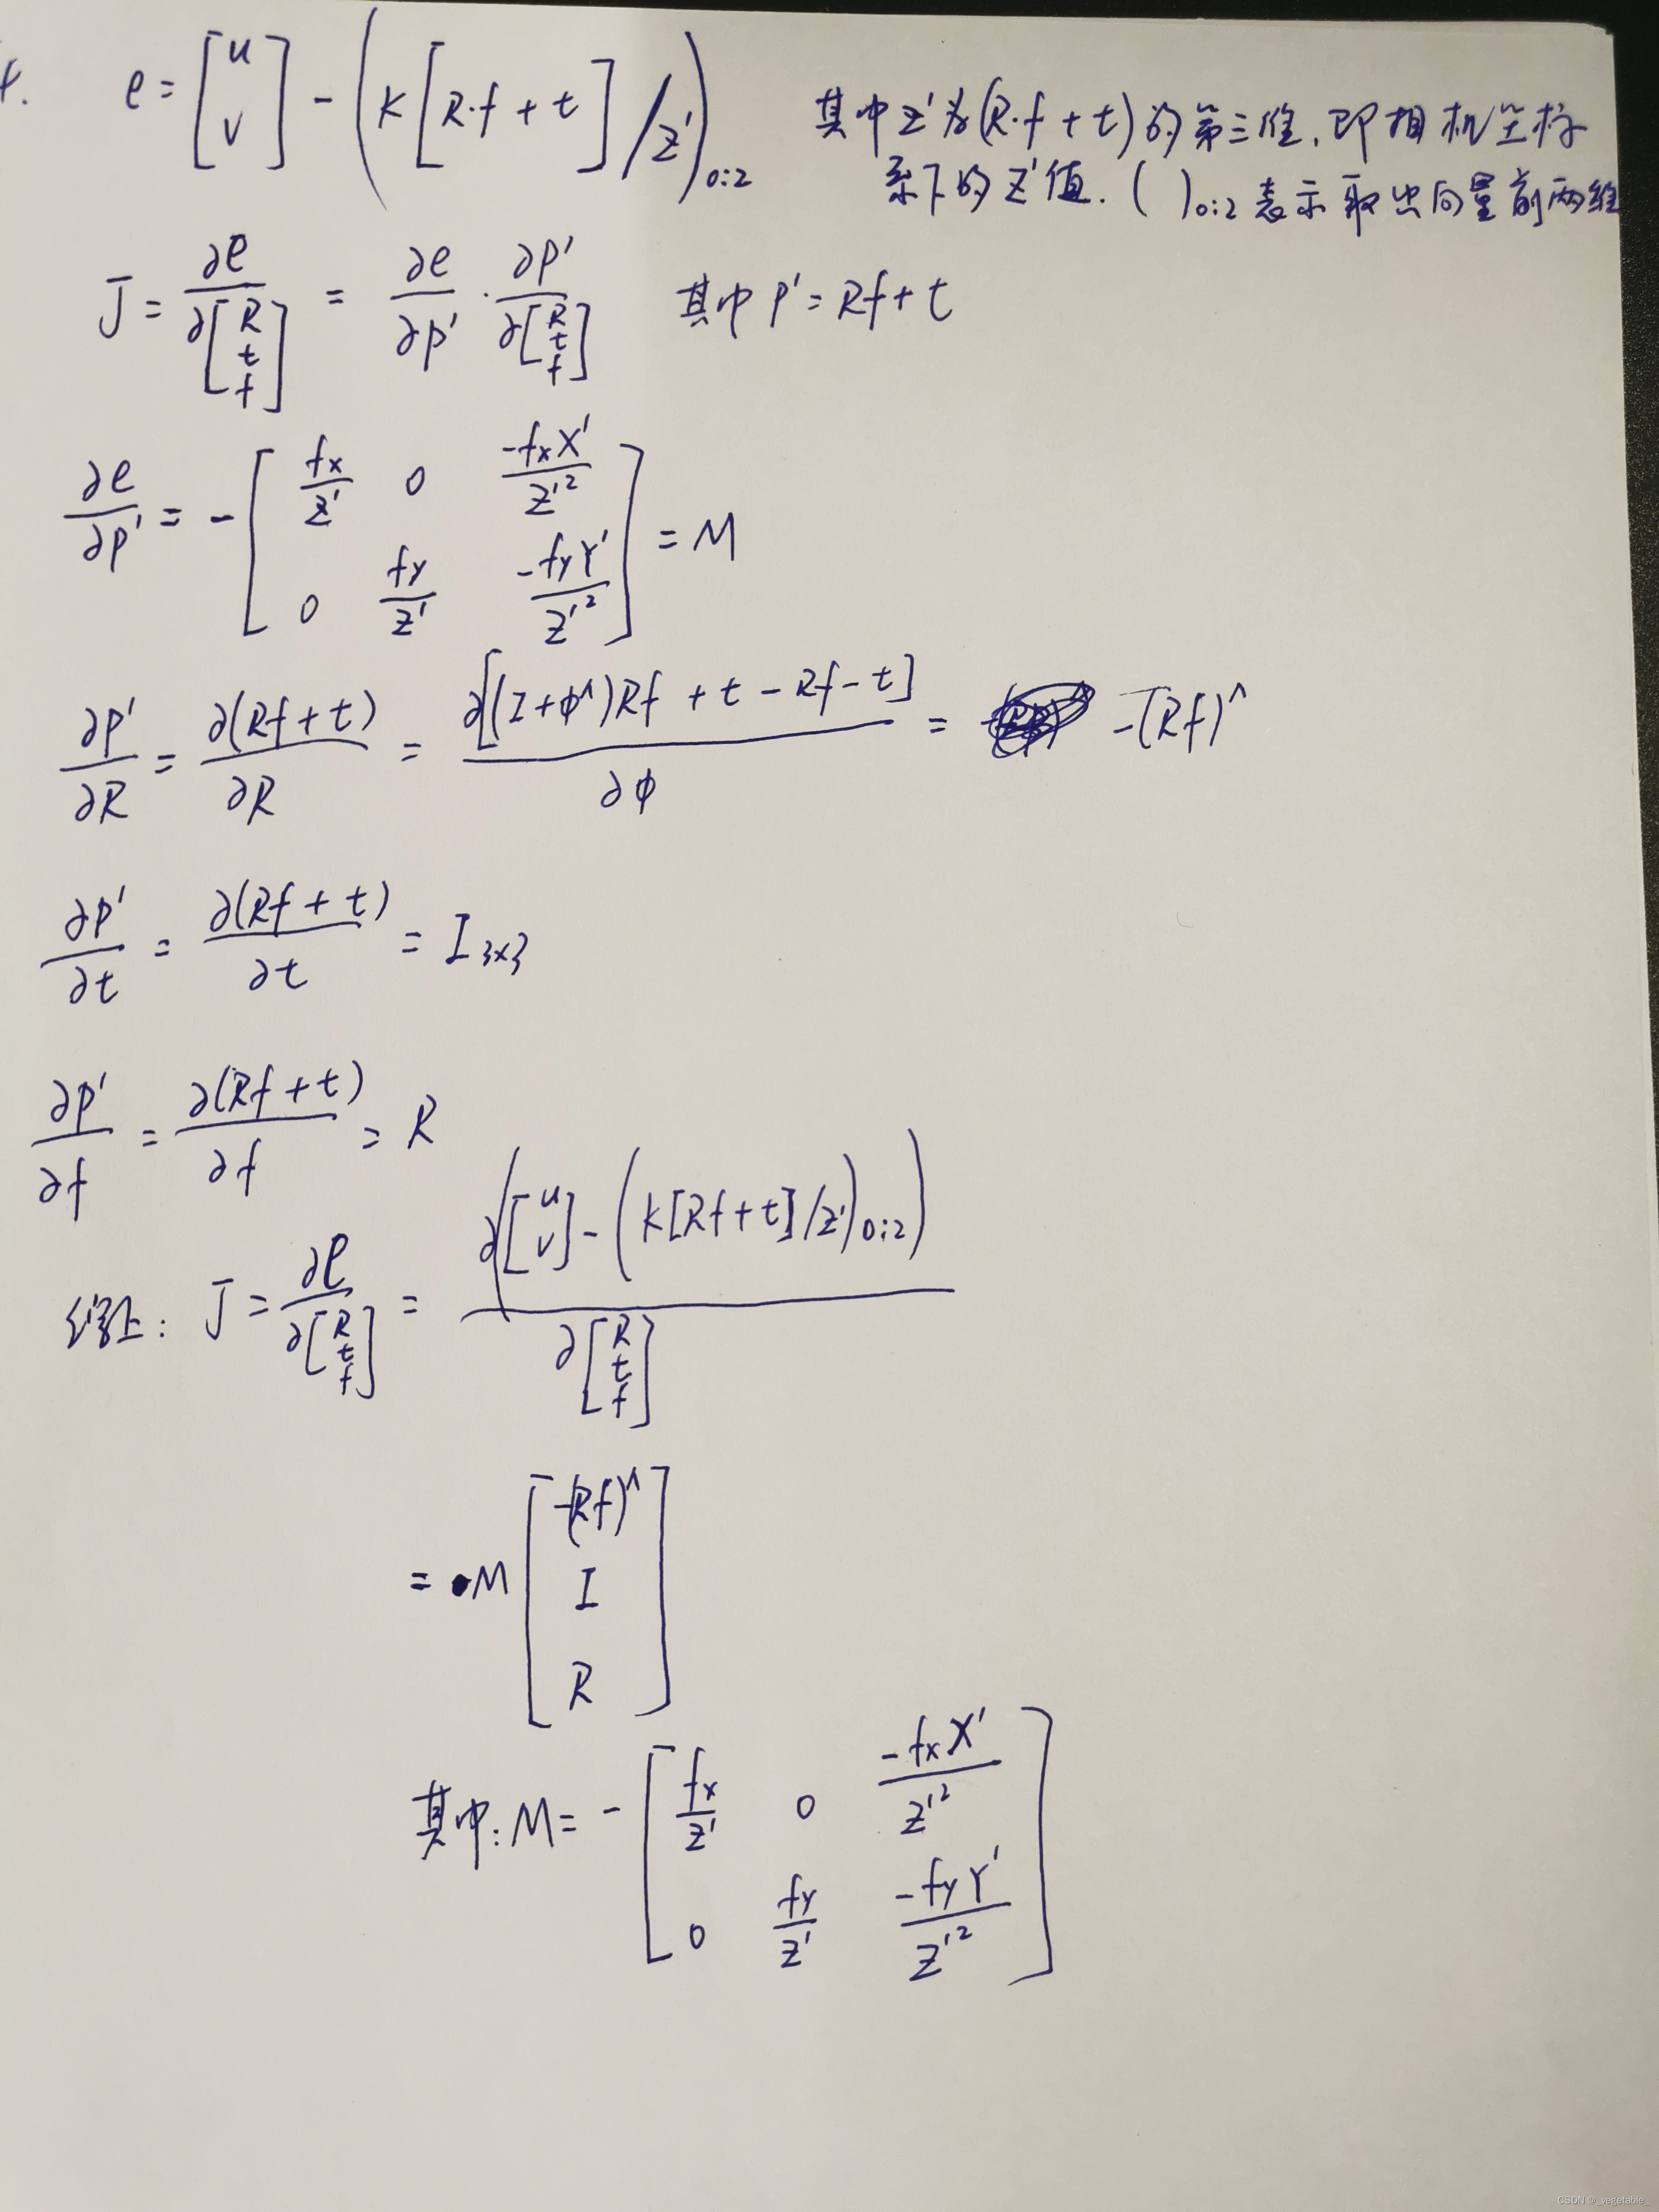 4. e = [u v] - (K[R·f + t]/z')0:2 其中z'为(R·f + t)的第三维,即相机坐标
系下的z'值. ( )0:2表示取出向量前两维
J = ∂e/∂[R t f] = ∂e/∂p' · ∂p'/∂[R t f] 其中 p' = Rf + t
∂e/∂p' = -[fx/z' 0 -fxX'/z'² ; 0 fy/z' -fyY'/z'²] = M
∂p'/∂R = ∂(Rf+t)/∂R = ∂[(I+φ^)Rf + t - Rf - t]/∂φ = -(Rf)^
∂p'/∂t = ∂(Rf + t)/∂t = I3×3
∂p'/∂f = ∂(Rf + t)/∂f = R
综上: J = ∂e/∂[R t f] = ∂([u v] - (K[Rf+t]/z')0:2)/∂[R t f]
= M[-(Rf)^ I R]
其中: M = -[fx/z' 0 -fxX'/z'² ; 0 fy/z' -fyY'/z'²]
CSDN @_vegetable_